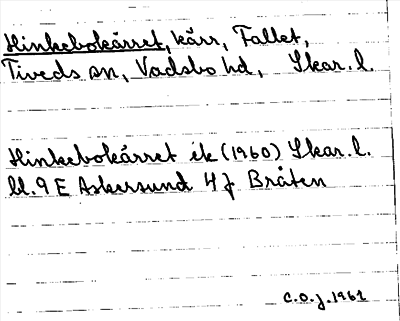 Hinkebokärret, kärr, Fallet,
Tiveds sn, Vadsbo hd, Skar. l.
Hinkebokärret ek (1960) Skar. l.
bl. 9 E Askersund 4 f Bråten
C.O.J. 1961